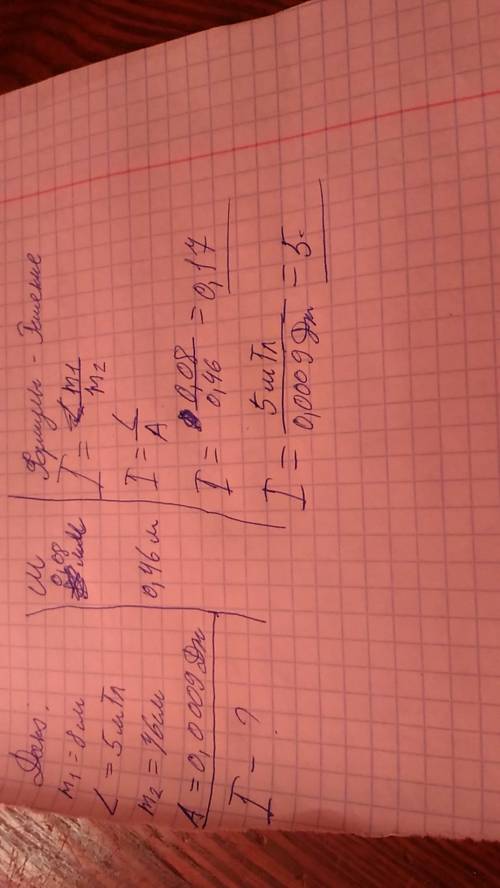 Дано:
m1 = 8 м
L = 5 мТл
m2 = 46 см
A = 0,0009 Дж
I - ?
М
0,08
мм
0,46 м
Формулы - Решение
I = m1/m2
I = L/A
I = 0,08/0,46 = 0,17
I = 5 мТл/0,0009 Дж = 5.